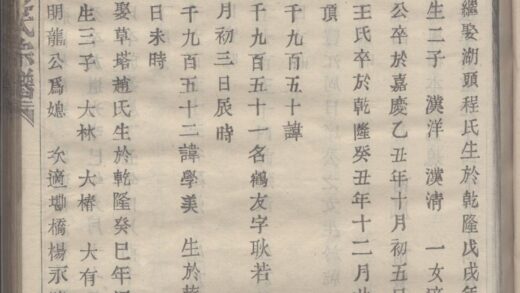 繼娶湖頭程氏生於乾隆戊戌年
生二子 漢洋 漢清 一女
公卒於嘉慶乙丑年十月初五
王氏卒於乾隆癸丑年十二月
頂
千九百五十諱
千九百五十一名鶴友字耿若
月初三日辰時
千九百五十二諱學美 生於
日未時
娶草塔趙氏生於乾隆癸巳年
生三子 大林 大椿 大有
明龍公爲媳 次適坳橋楊永
氏宗譜